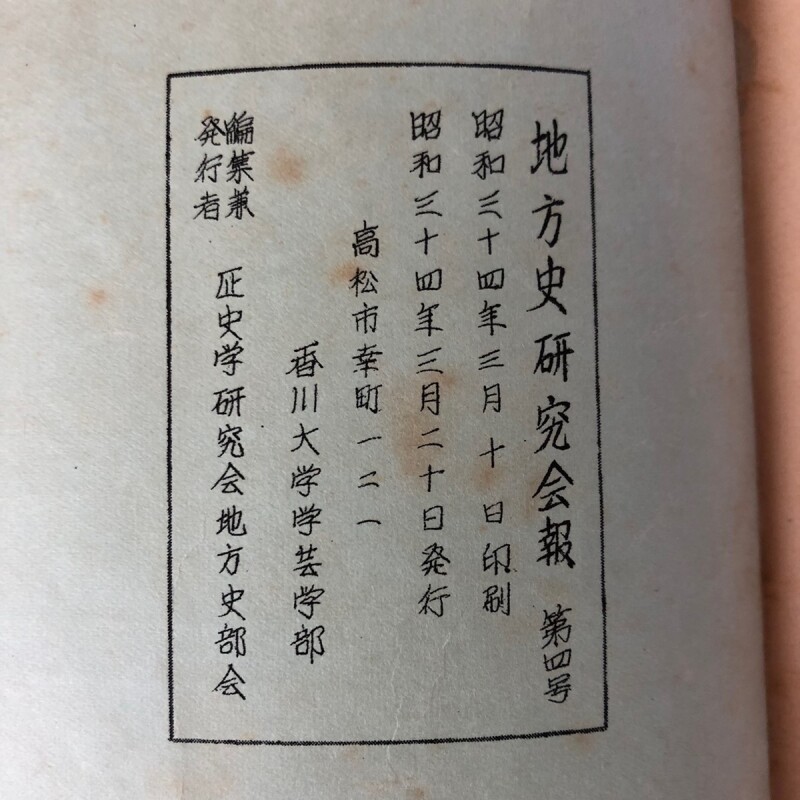 地方史研究会報 第四号
昭和三十四年三月十日印刷
昭和三十四年三月二十日発行
高松市幸町一二一
香川大学学芸学部
編集兼
発行者
厂史学研究会地方史部会